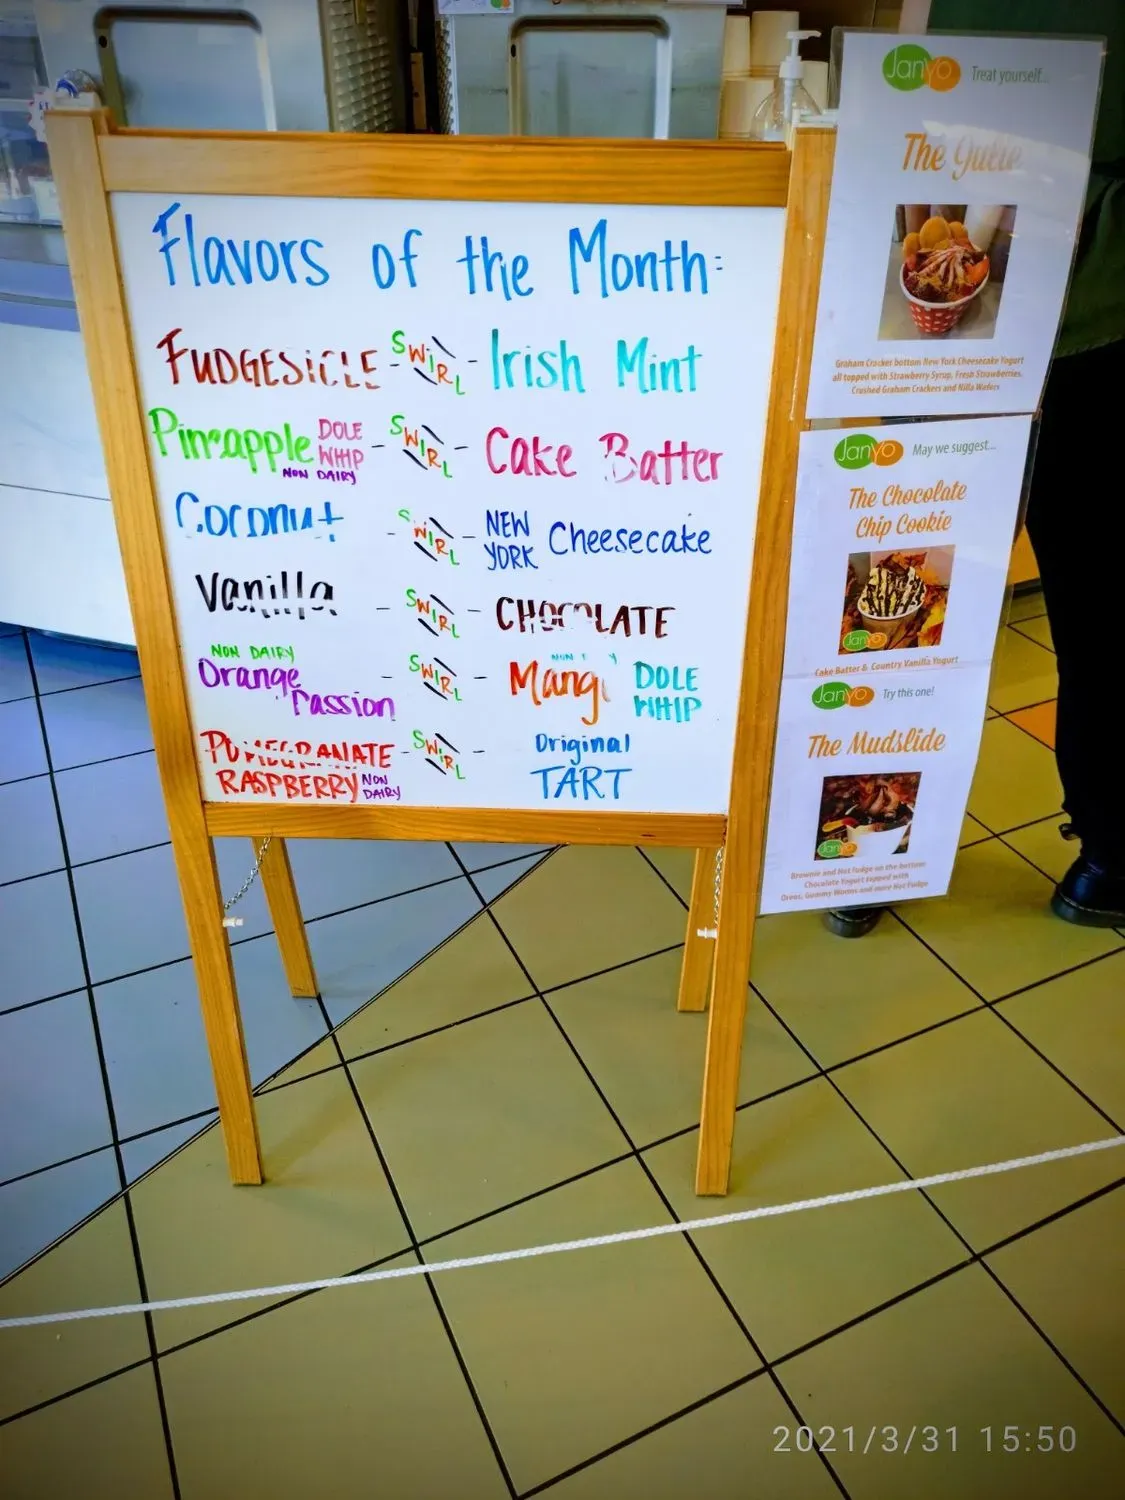 Flavors of the Month:
FUDGESICLE - SWIRL - Irish Mint
Pineapple DOLE WHIP NON DAIRY - SWIRL - Cake Batter
Coconut - SWIRL - NEW YORK Cheesecake
Vanilla - SWIRL - CHOCOLATE
NON DAIRY
Orange Passion - SWIRL - Mango DOLE WHIP
POMEGRANATE RASPBERRY NON DAIRY - SWIRL - Original TART
JanYo Treat yourself...
The Julie
Graham Cracker bottom New York Cheesecake Yogurt
all topped with Strawberry Syrup, Fresh Strawberries,
Crushed Graham Crackers and Nilla Wafers
JanYo May we suggest...
The Chocolate
Chip Cookie
JanYo
Cake Batter & Country Vanilla Yogurt
JanYo Try this one!
The Mudslide
JanYo
Brownie and Hot Fudge on the bottom
Chocolate Yogurt topped with
Oreos, Gummy Worms and more Hot Fudge
2021/3/31 15:50